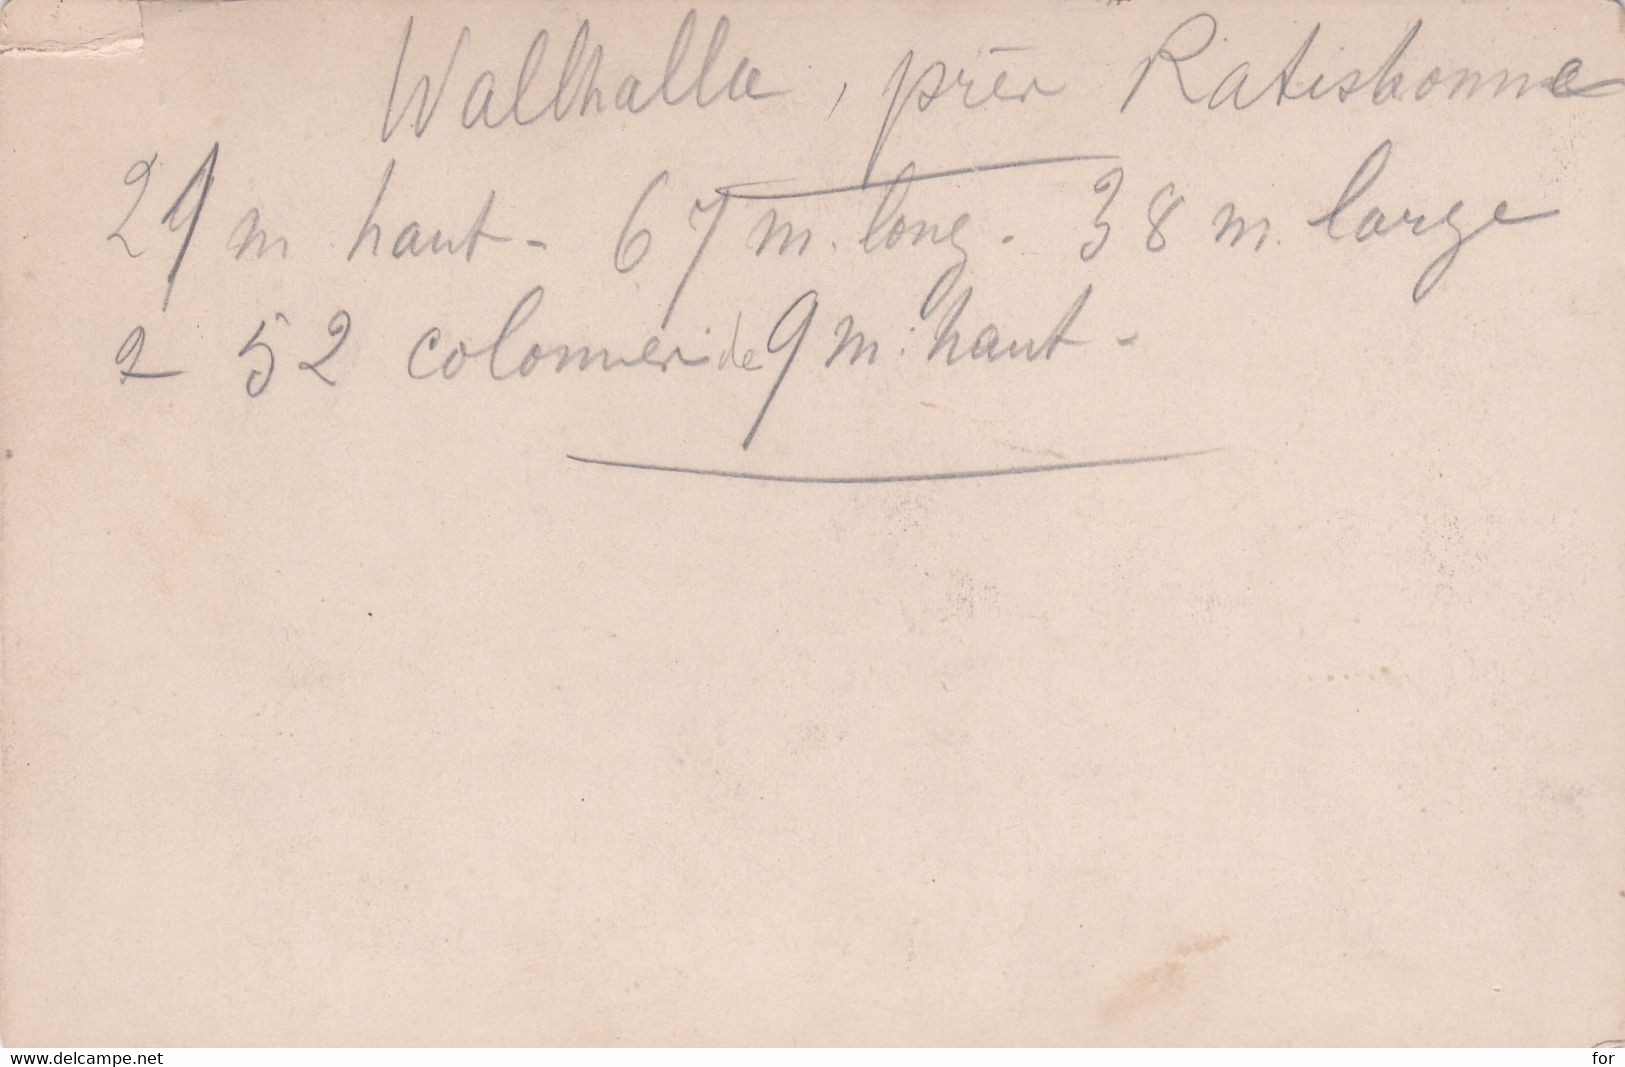 Walhalla, près Ratisbonne
29 m haut - 67 m. long - 38 m. large
2 52 colonnes de 9 m. haut -
www.delcampe.net
for